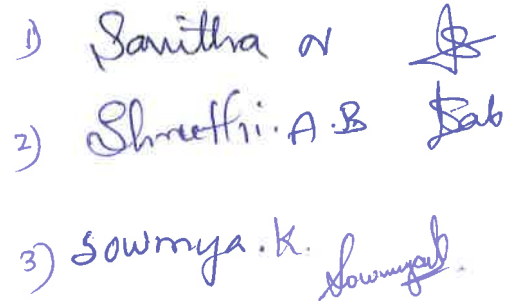 1) Savitha N
2) Shruthi. A.B Sab
3) Sowmya.K. Sowmyak.